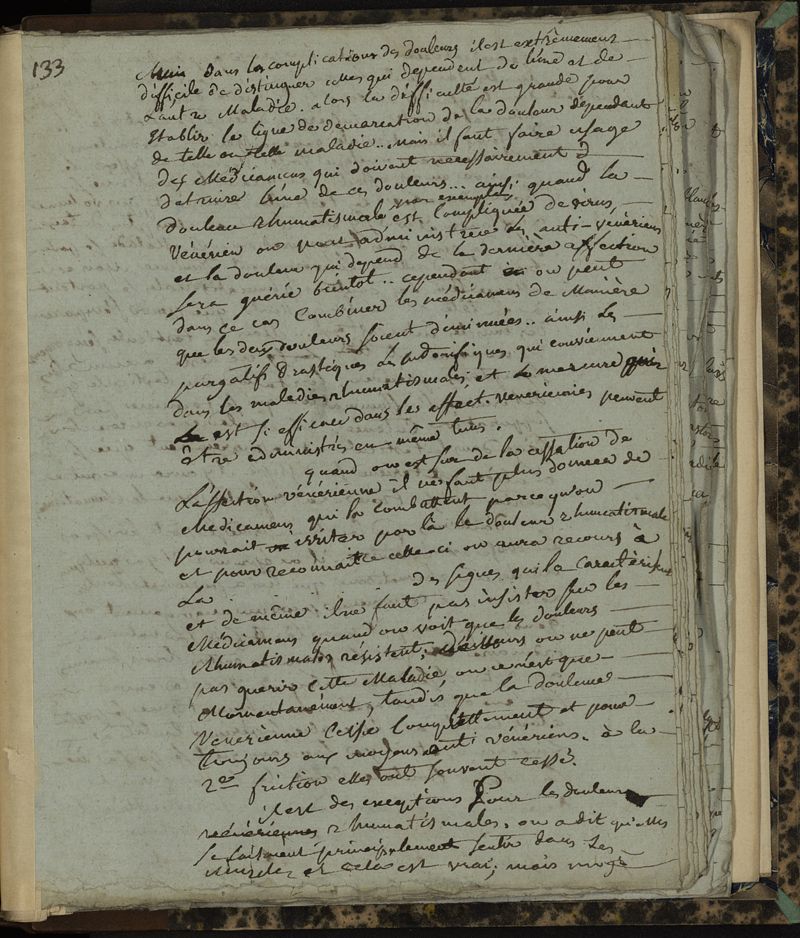 133
Mais dans les complications des douleurs il est extrêmement
difficile de distinguer celles qui dependent de l'une et de
L'autre Maladie. alors la difficulté est grande pour
Etablir la ligne de demarcation de la douleur dependante
de telle ou telle maladie.. Mais il faut faire usage
des Médicamens qui doivent necessairement
detruire l'une de ces douleurs... ainsi quand la
par exemple
douleur rhumatismale est Compliquée de virus
Vénérien on peut administrer les anti-vénériens
et la douleur qui depend de la dernière affection
sera guérie bientot.. cependant on peut
dans ce cas Combiner les médicamens de Manière
que les deux douleurs soient diminuées.. ainsi les
purgatifs Drastiques les sudorifiques qui conviennent
dans les maladies rhumatismales, et le mercure qui
est si efficace dans les affect. veneriennes peuvent
être administrés en même tems.
quand on est sur de la cessation de
L'affection vénérienne il ne faut plus donner de
Medicamens qui la combattent parce qu'on
pourrait irriter par là la douleur rhumatismale
et pour reconnaitre celle-ci on aura recours à
La des signes qui la caractérisent
et de même il ne faut pas insister sur les
Médicamens quand on voit que les douleurs
Rhumatismales résistent; d'ailleurs on ne peut
pas guerir cette Maladie, ou ce n'est que
Momentanément, tandis que la douleur
Vénérienne Cesse Complettement et pour
toujours aux moyens anti vénériens. à la
2de friction elles ont souvent cessé.
il est des exceptions Pour les douleurs
vénériennes rhumatismales, on a dit qu'elles
se faisaient principalement sentir dans les
muscles et cela est vrai; mais